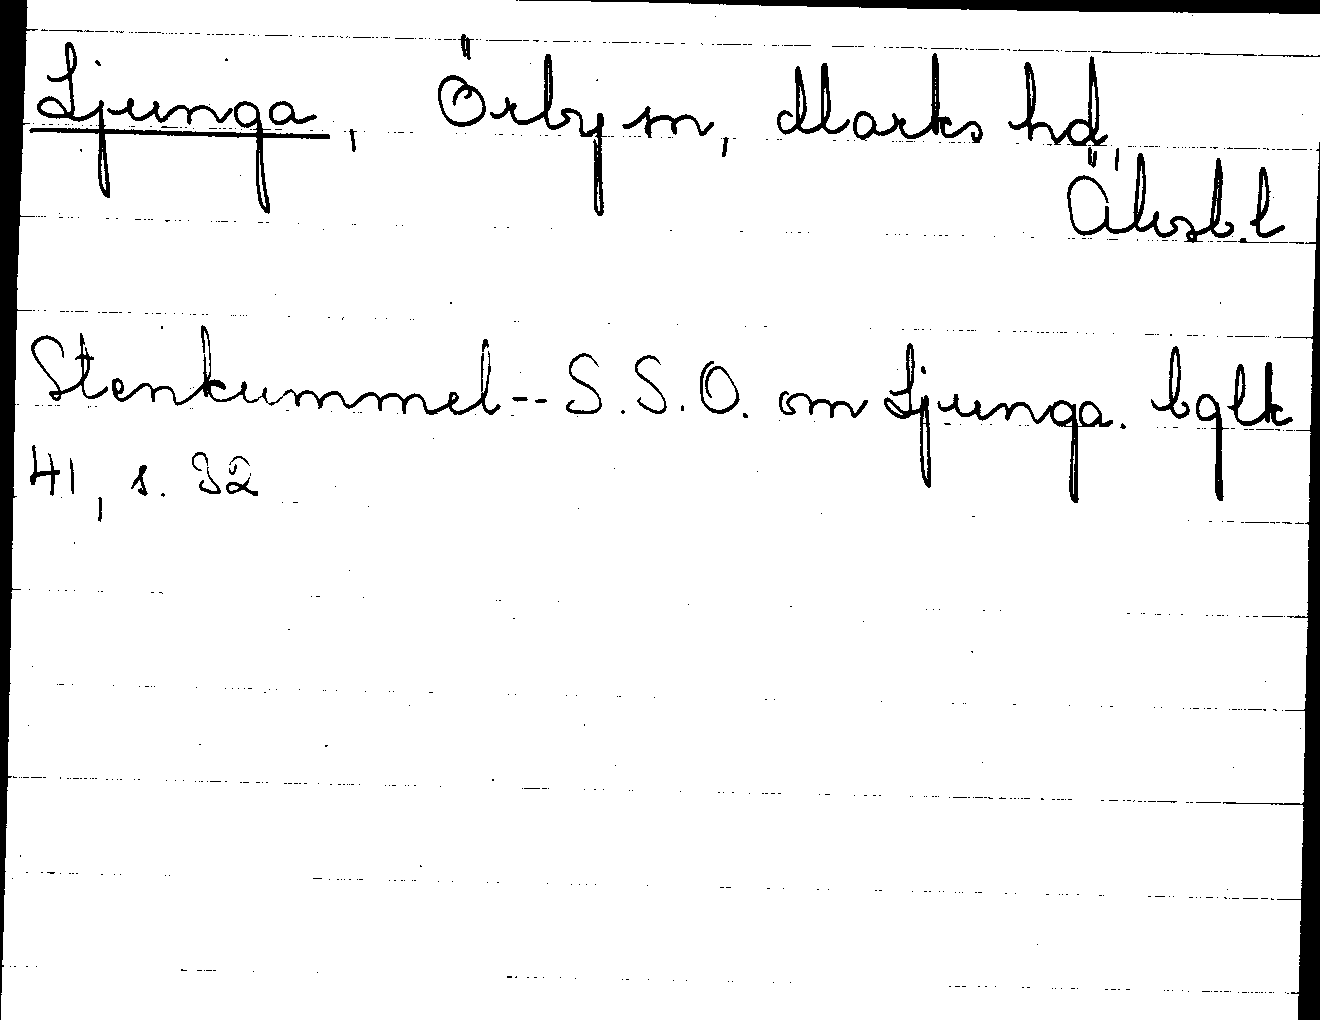 Ljunga, Örby sn, Marks hd,
Älvsb.l
Stenkummel-- S.S.O. om Ljunga. bglk
41, s. 32